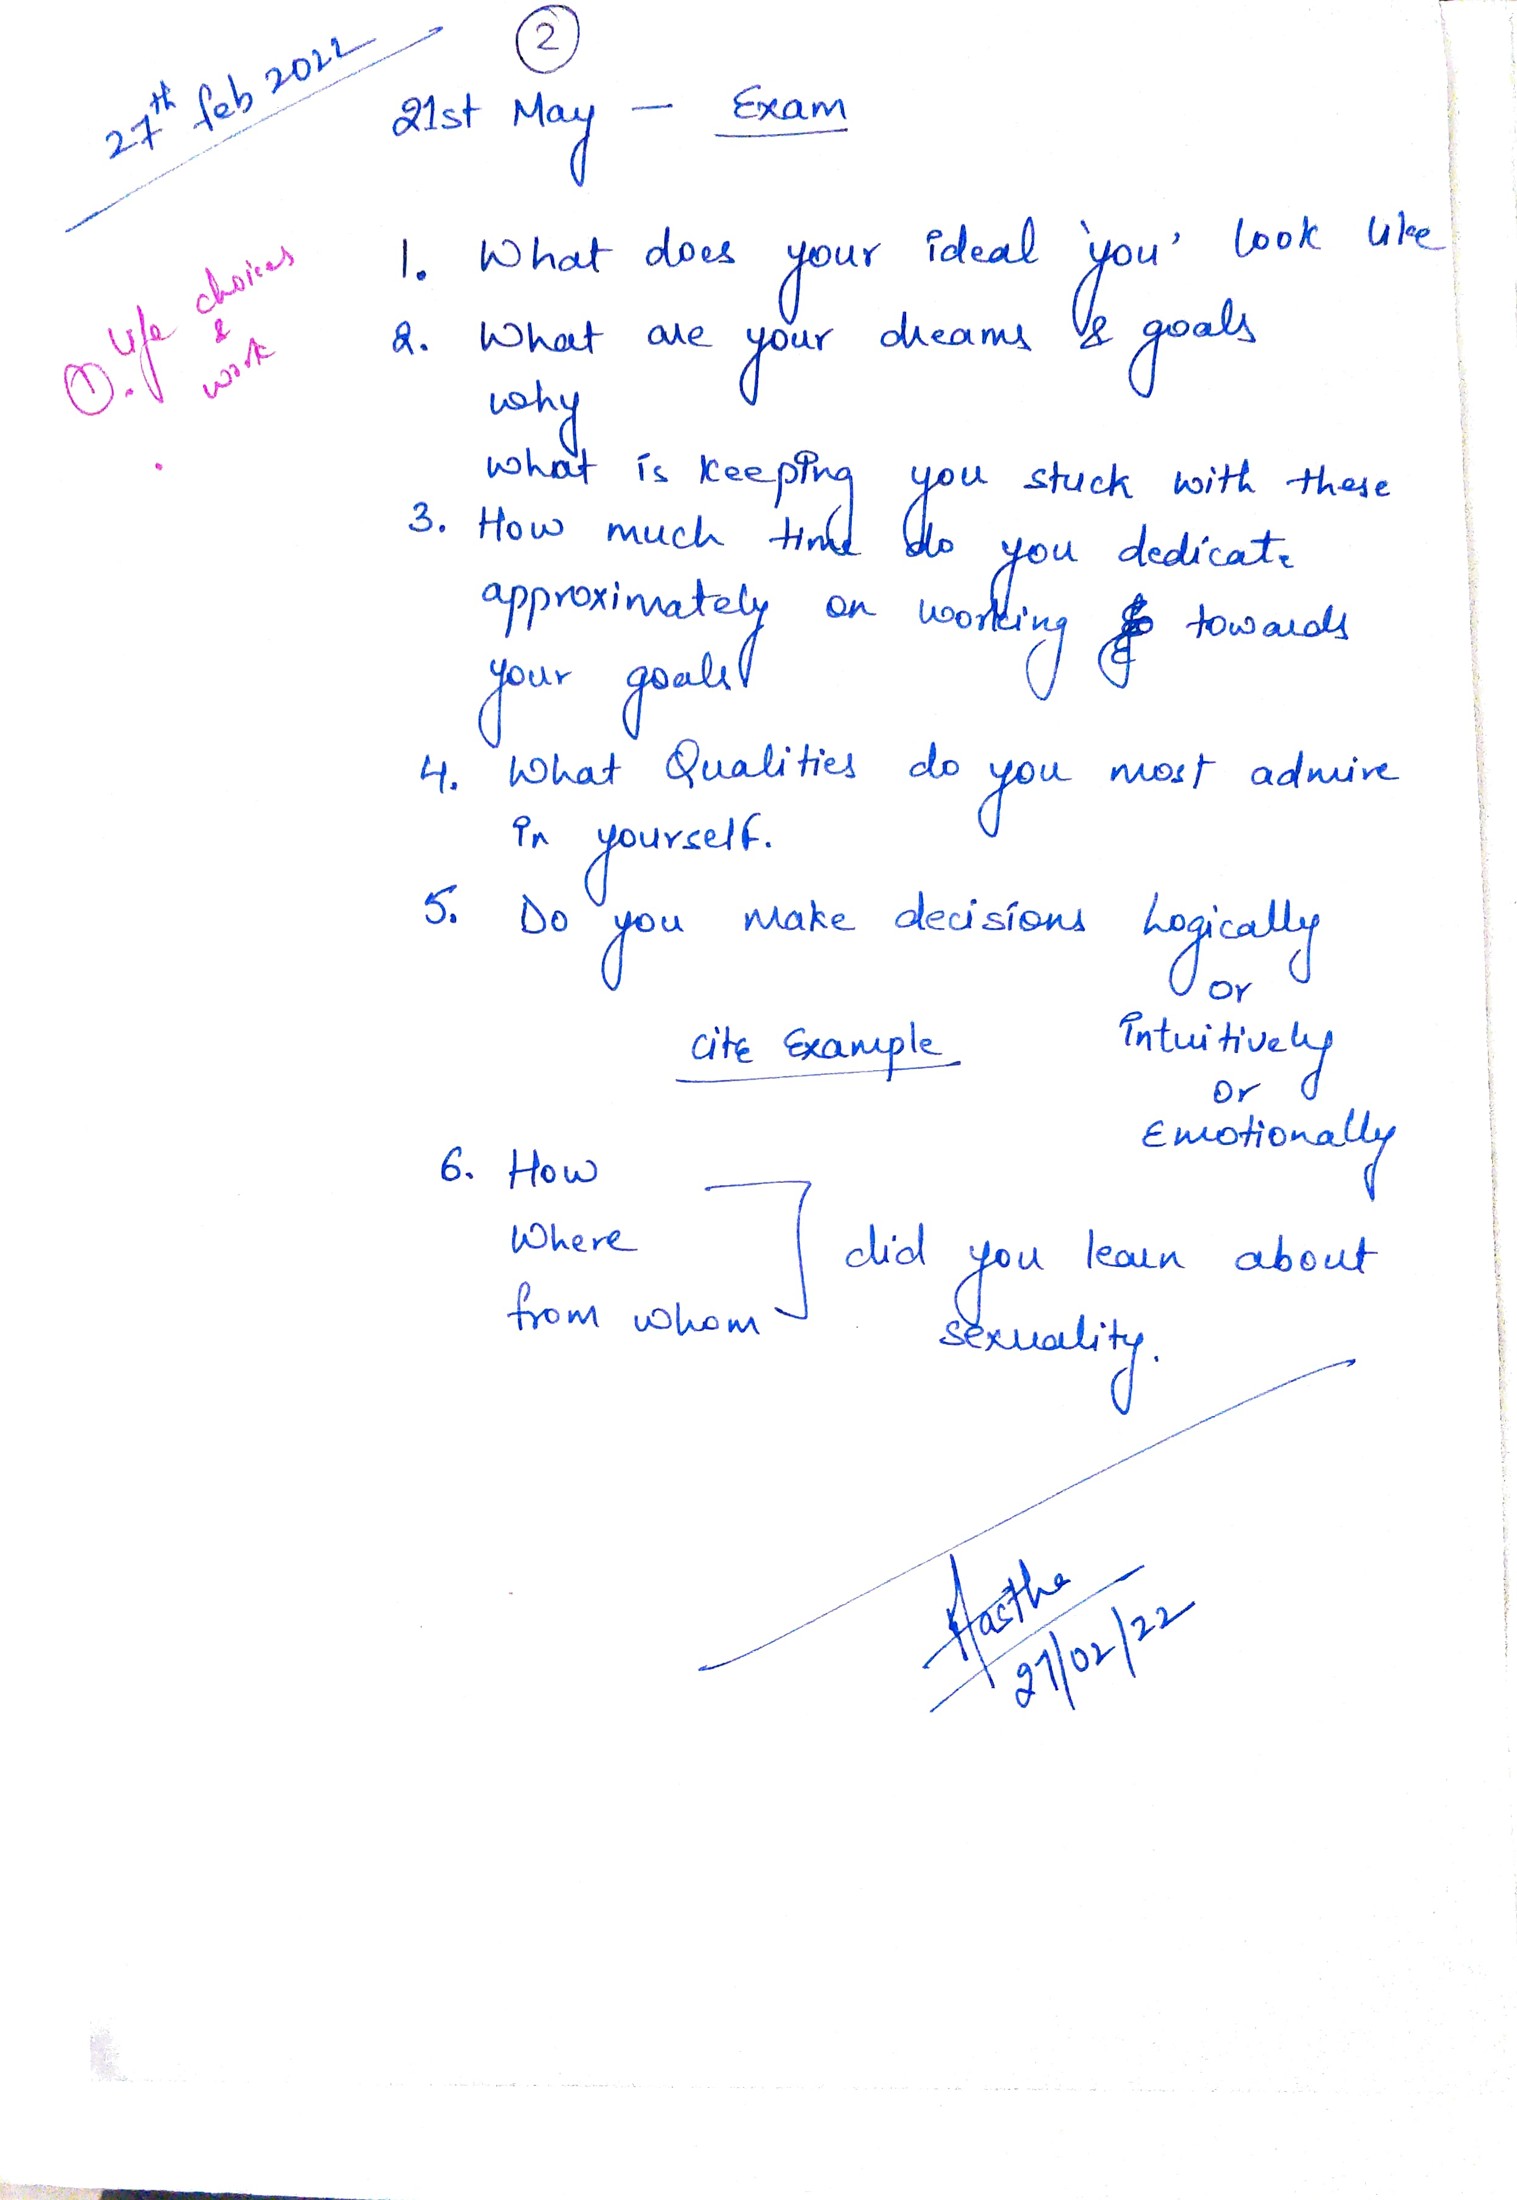 2
27th feb 2022
21st May — Exam
1. life choices
&
work
1. What does your ideal 'you' look like
2. What are your dreams & goals
why
what is keeping you stuck with these
3. How much time do you dedicate
approximately on working towards
your goals
4. What Qualities do you most admire
in yourself.
5. Do you make decisions Logically
or
cite Example intuitively
or
Emotionally
6. How
Where
from whom
did you learn about
sexuality.
Aastha
27/02/22